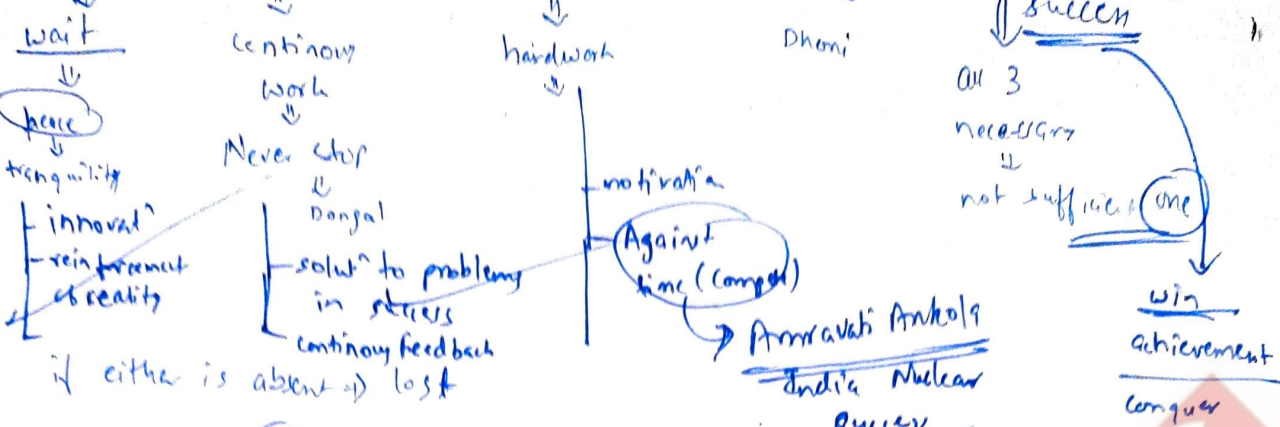 wait
peace
tranquility
innovatⁿ
reinforcement
of reality
continouy
work
Never stop
Dangal
solutⁿ to problems
in stress
continouy feedback
if either is absent ⇒ lost
hardwork
motivation
Against
time (compet)
Amravati Ankola
India Nuclear
Power
Dhoni
success
all 3
necessary
not sufficient one
win
achievement
conquer